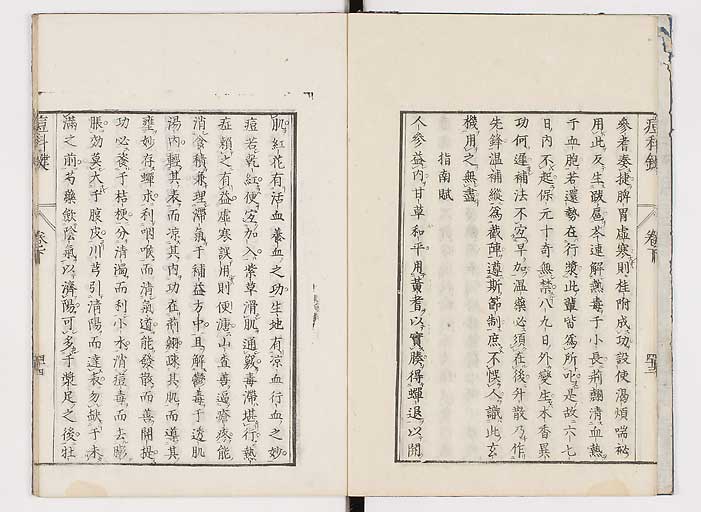 痘科鍵
卷下
四十三
參耆奏捷脾胃虛寒則桂附成功設使渴煩喘
用此反生跋扈芩連解熱毒于小長荊翹清血熱
于血胞若還勢在行漿此輩皆為所叱是故六七
日內不起保元十奇無禁八九日外變生木香異
功何遲補法不宜早加溫藥必須在後升散乃作
先鋒溫補縱為截陣遵斯節制庶不悞人識此玄
機用之無盡
指南賦
人參益內甘草和平用黃耆以實腠得蟬退以開
肌紅花有活血養血之功生地有涼血行血之妙
痘若乾紅便宜加入紫草滑肌通竅毒滯堪行熱
症頼之有益虛寒誤用則便溏山查善逼瘡疼能
消食積兼理滯氣于補益方中且解鬱毒于透肌
湯內輕其表而涼其內功在荊翹疎其肌而導其
壅妙存蟬水利咽喉而清氣道能發散而善開提
功必養于桔梗分清濁而利小水消痘毒而去膨
脹効莫大于腹皮川芎引清陽而達表勿缺于未
滿之前芍藥歛陰氣以濟陽可多于漿足之後壯
痘科鍵
卷下
四十四